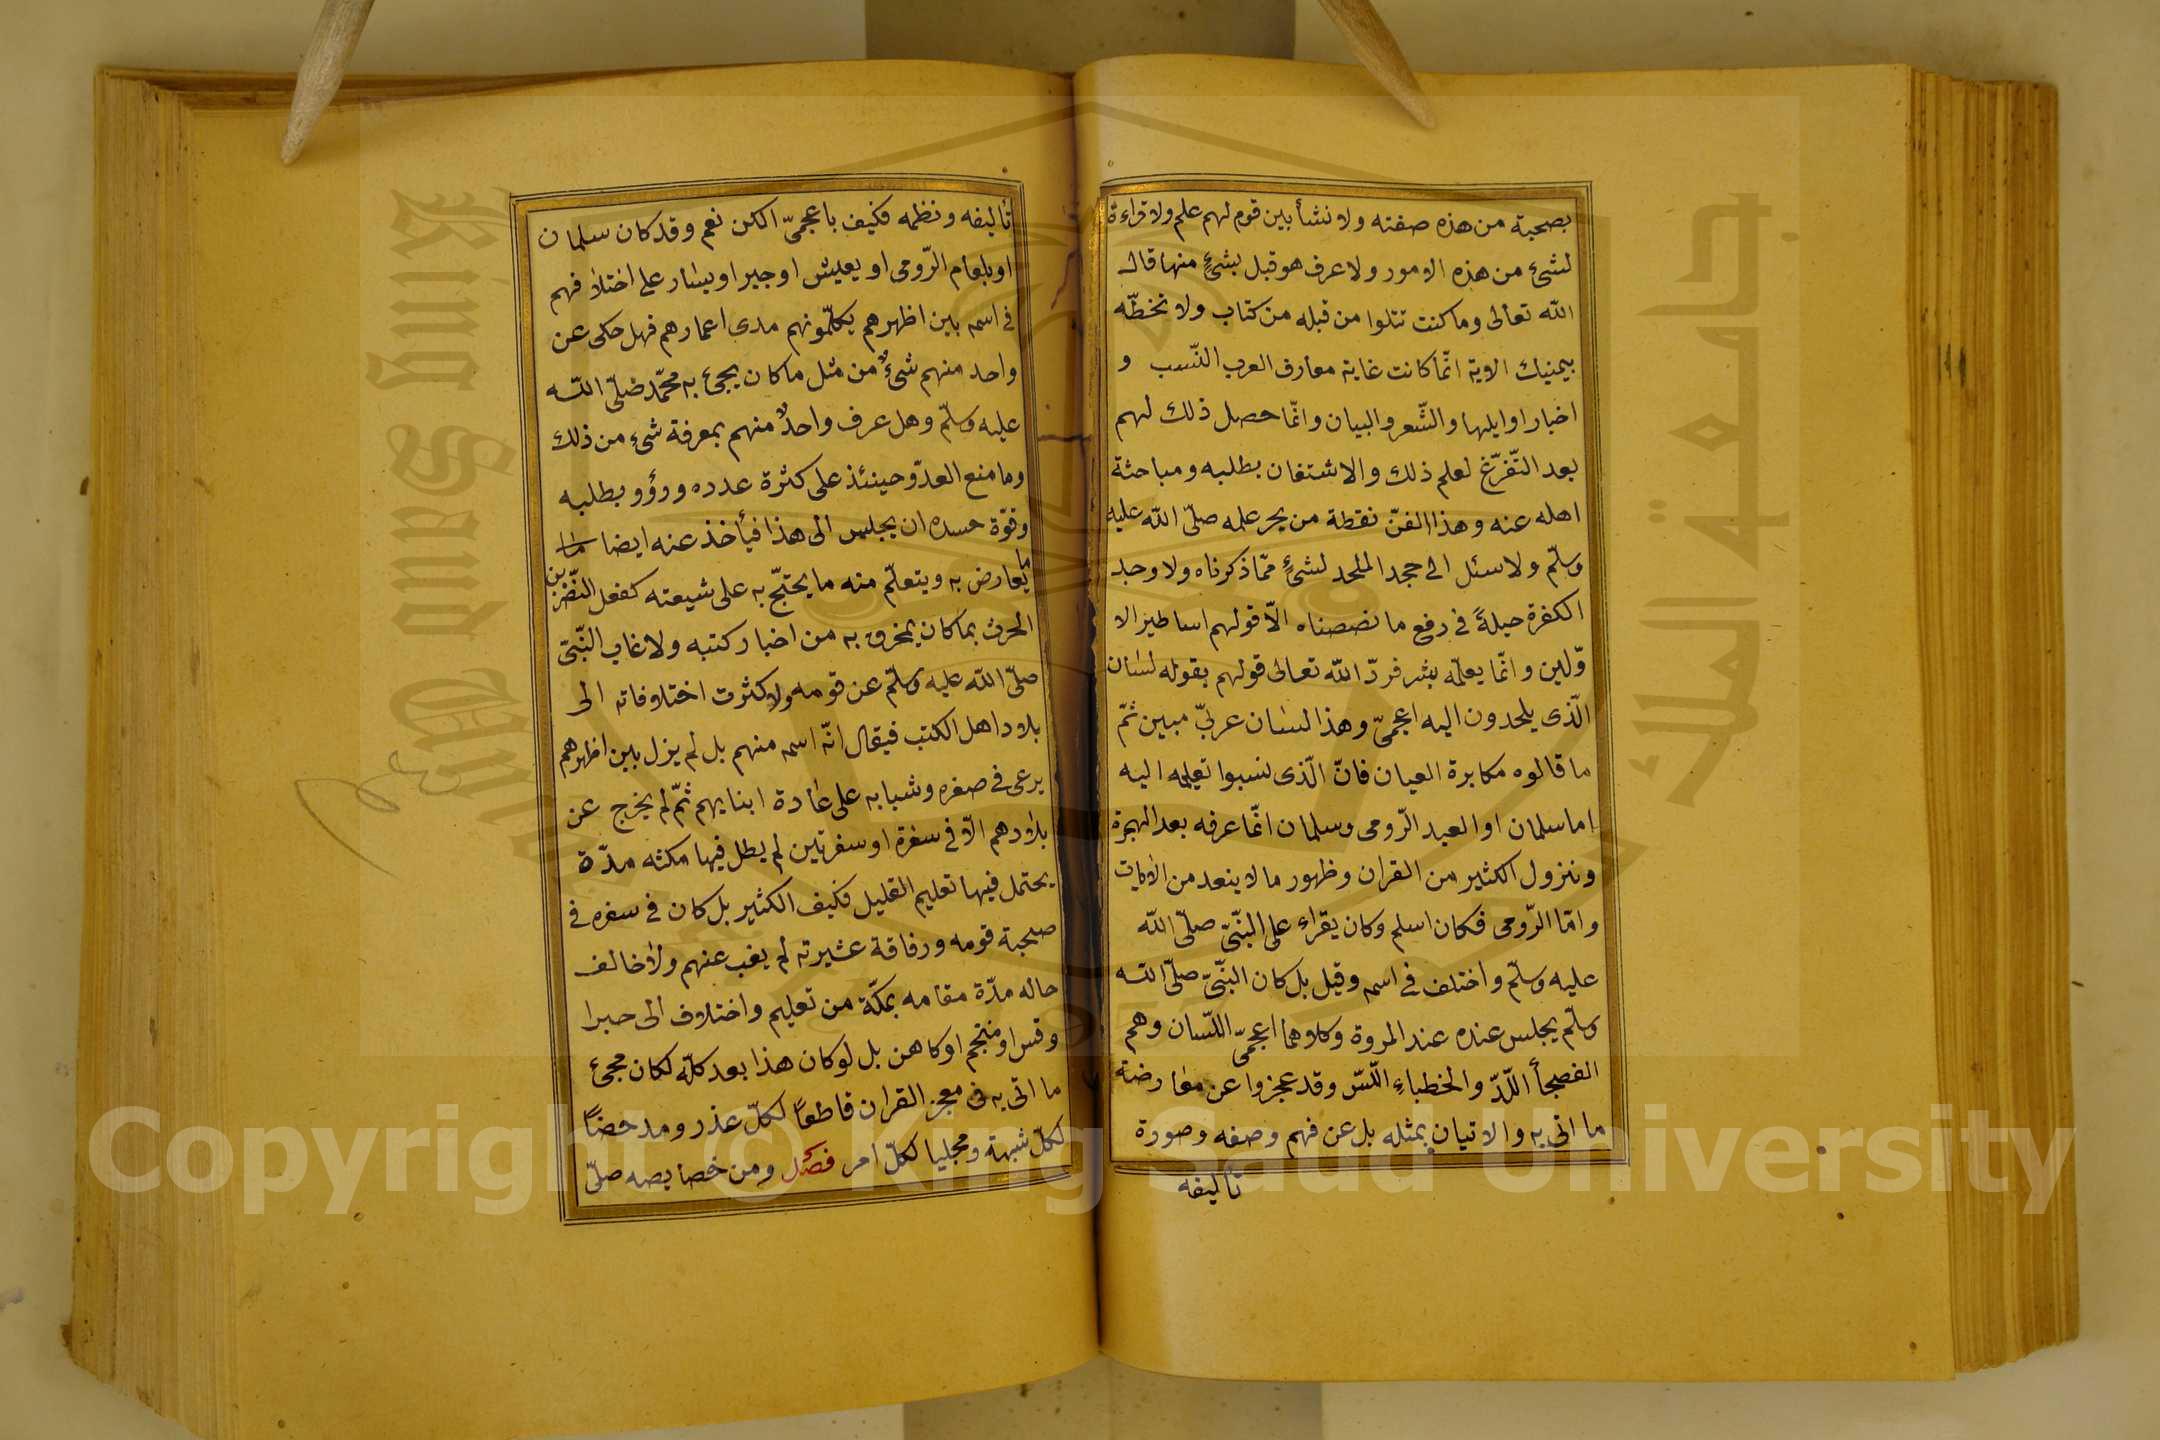 بصحبة من هذه صفته ولا نشأ بين قوم لهم علم ولا قراءة
لشئ من هذه الامور ولا عرف هو قبل بشئٍ منها قال
الله تعالى وما كنت تتلوا من قبله من كتاب ولا تخطّه
بيمنيك الاية انّما كانت غاية معارف العرب النّسب و
اخبار اوايلها والشّعر والبيان وانّما حصل ذلك لهم
بعد التّفرّغ لعلم ذلك والاشتغان بطلبه ومباحثة
اهله عنه وهذا الفنّ نقطة من بحر علمه صلّى الله عليه
وسلّم ولا سئل الى جحد الملحد لشئٍ ممّا ذكرناه ولا وجد
الكفرة حيلةً فى دفع ما نصصناه الاّ قولهم اساطير الا
وّلين وانّما يعلّمه بشر فردّ الله تعالى قولهم بقوله لسان
الّذى يلحدون اليه اعجمىّ وهذا لسان عربىّ مبين ثمّ
ما قالوه مكابرة العيان فانّ الّذى نسبوا تعليمه اليه
اما سلمان او العبد الرّومى وسلمان انّما عرفه بعد الهجرة
ونزول الكثير من القران وظهور ما لا ينعد من الايات
وامّا الرّومى فكان اسلم وكان يقراء على النّبىّ صلّى الله
عليه وسلّم واختلف فى اسمه وقيل بل كان النّبىّ صلّى الله
وسلّم يجلس عنده عند المروة وكلاهما اعجمىّ اللّسان وهم
الفصحأ اللّدّ والخطباء اللّسّن وقد عجزوا عن معارضة
ما اتى به والاتيان بمثله بل عن فهم وصفه وصورة
تاليفه
تأليفه ونظمه فكيف باعجمىّ الكن نعم وقد كان سلمان
او بلعام الرّومى او يعيش او جبر او يسار على اختلا فهم
فى اسمه بين اظهرهم يكلّمونهم مدى اعمارهم فهل حكى عن
واحد منهم شئٌ من مثل ما كان يجئ به محمّد صلّى الله
عليه وسلّم وهل عرف واحدٌ منهم بمعرفة شئ من ذلك
وما منع العدّو حينئذ على كثرة عدده ودؤوبطلبه
وقوّة حسده ان يجلس الى هذا فيأخذ عنه ايضا ما
يعارض به ويتعلّم منه ما يحتجّ به على شيعته كفعل النّضر بن
الحرث بما كان يمخرق به من اخبار كتبه ولا غاب النّبىّ
صلّى الله عليه وسلّم عن قومه ولا كثرت اختلافاته الى
بلاد اهل الكتب فيقال انّه اسمه منهم بل لم يزل بين اظهرهم
يرعى فى صغره وشبابه على عادة ابنايهم ثمّ لم يخرج عن
بلادهم الاّ فى سفرة او سفرتين لم يطل فيها مكثه مدّة
يحتمل فيها تعليم القليل فكيف الكثير بل كان فى سفره فى
صحبة قومه ورفاقة عشيرته لم يغب عنهم ولا خالف
حاله مدّة مقامه بمكّة من تعليم واختلاف الى حبرا
وقس او منجّم او كاهن بل لو كان هذا بعد كلّه لكان مجئ
ما اتى به فى معجز القران قاطعاً لكلّ عذر ومدحضاً
لكلّ شبهة ومجليا لكلّ امر فصل ومن خصايصه صلّى
Copyright © King Saud University
King Saud University
جامعة الملك